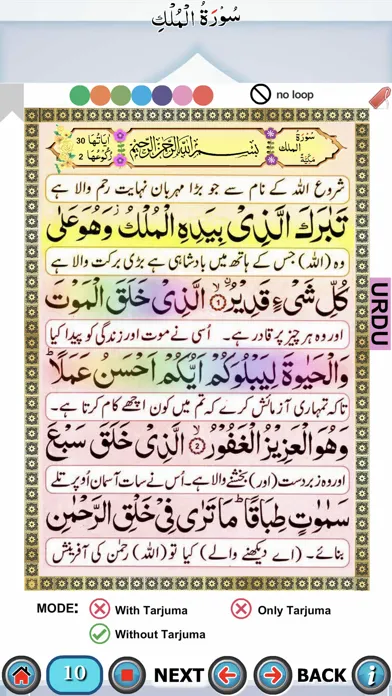 سُوْرَةُ الْمُلْكِ
no loop
اٰیَاتُهَا 30
رُكُوْعُهَا 2
بِسْمِ اللّٰهِ الرَّحْمٰنِ الرَّحِيْمِ
سُوْرَةُ
الملك
مَكِّيَّةٌ
شروع اللہ کے نام سے جو بڑا مہربان نہایت رحم والا ہے
تَبٰرَكَ الَّذِىْ بِيَدِهِ الْمُلْكُ وَهُوَ عَلٰى
وہ (اللہ) جس کے ہاتھ میں بادشاہی ہے بڑی برکت والا ہے
كُلِّ شَىْءٍ قَدِيْرٌ ۙ﴿1﴾ الَّذِىْ خَلَقَ الْمَوْتَ
اور وہ ہر چیز پر قادر ہے۔ اُسی نے موت اور زندگی کو پیدا کیا
وَالْحَيٰوةَ لِيَبْلُوَكُمْ اَيُّكُمْ اَحْسَنُ عَمَلًا ؕ
تاکہ تمہاری آزمائش کرے کہ تم میں کون اچھے کام کرتا ہے۔
وَهُوَ الْعَزِيْزُ الْغَفُوْرُ ۙ﴿2﴾ الَّذِىْ خَلَقَ سَبْعَ
اور وہ زبردست (اور) بخشنے والا ہے۔ اس نے سات آسمان اُوپر تلے
سَمٰوٰتٍ طِبَاقًا ؕ مَا تَرٰى فِىْ خَلْقِ الرَّحْمٰنِ
بنائے۔ (اے دیکھنے والے) کیا تو (اللہ) رحمٰن کی آفرینش
URDU
MODE: With Tarjuma Only Tarjuma
Without Tarjuma
10 NEXT BACK i